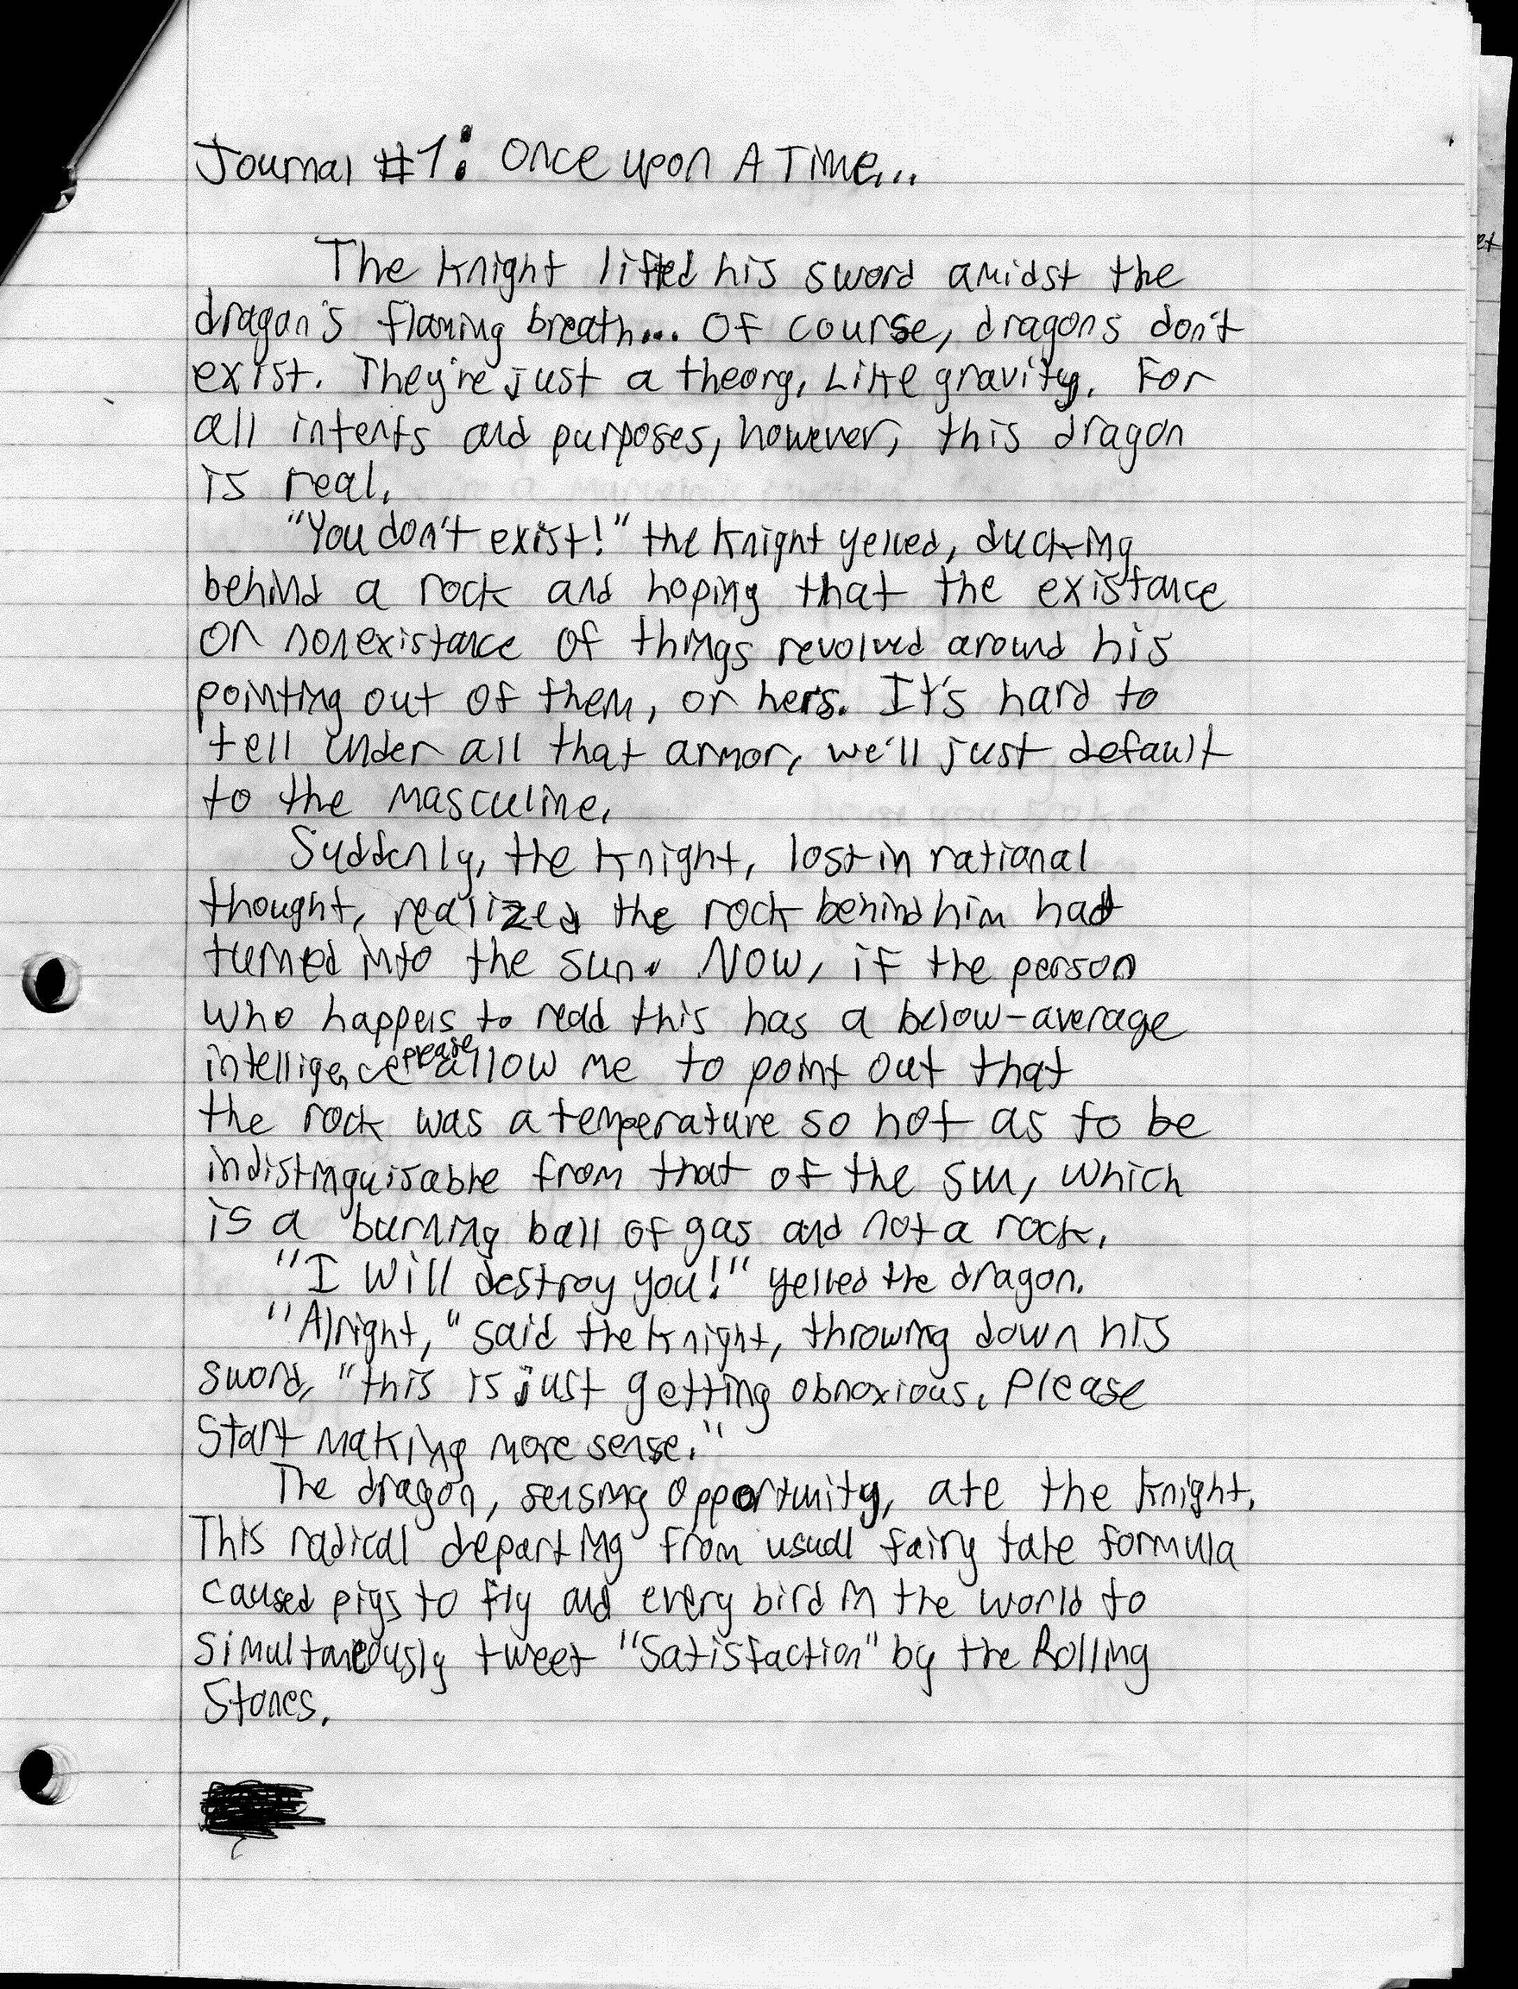 Journal #1: Once upon A Time...
The knight lifted his sword amidst the
dragon's flaming breath... Of course, dragons don't
exist. They're just a theory, Like gravity. For
all intents and purposes, however, this dragon
is real.
"You don't exist!" the knight yelled, ducking
behind a rock and hoping that the existance
or nonexistance of things revolved around his
pointing out of them, or hers. It's hard to
tell under all that armor, we'll just default
to the masculine.
Suddenly, the knight, lost in rational
thought, realized the rock behind him had
turned into the sun. Now, if the person
who happens to read this has a below-average
intelligence please allow me to point out that
the rock was a temperature so hot as to be
indistinguisable from that of the sun, which
is a burning ball of gas and not a rock.
"I will destroy you!" yelled the dragon.
"Alright," said the knight, throwing down his
sword, "this is just getting obnoxious. Please
start making more sense."
The dragon, seising opportunity, ate the knight.
This radical departing from usual fairy tale formula
caused pigs to fly and every bird in the world to
simultaneously tweet "Satisfaction" by the Rolling
Stones.